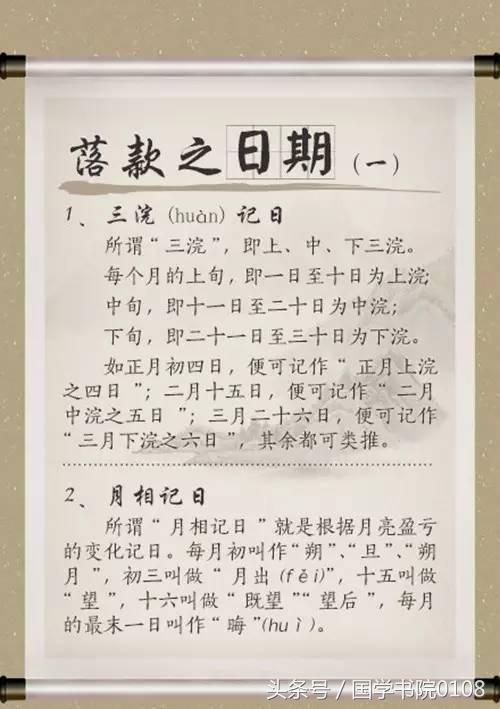 落款之日期（一）
1、三浣(huàn)记日
所谓“三浣”，即上、中、下三浣。
每个月的上旬，即一日至十日为上浣；
中旬，即十一日至二十日为中浣；
下旬，即二十一日至三十日为下浣。
如正月初四日，便可记作“ 正月上浣
之四日 ”；二月十五日，便可记作“ 二月
中浣之五日 ”；三月二十六日，便可记作
“三月下浣之六日”，其余都可类推。
2、月相记日
所谓“ 月相记日 ”就是根据月亮盈亏
的变化记日。每月初叫作“朔”、“旦”、“朔
月 ”，初三叫做 “ 月出 (fěi)”，十五叫做
“望”，十六叫做 “既望”“望后”，每月
的最末一日叫作“晦”(huì)。
头条号／国学书院0108